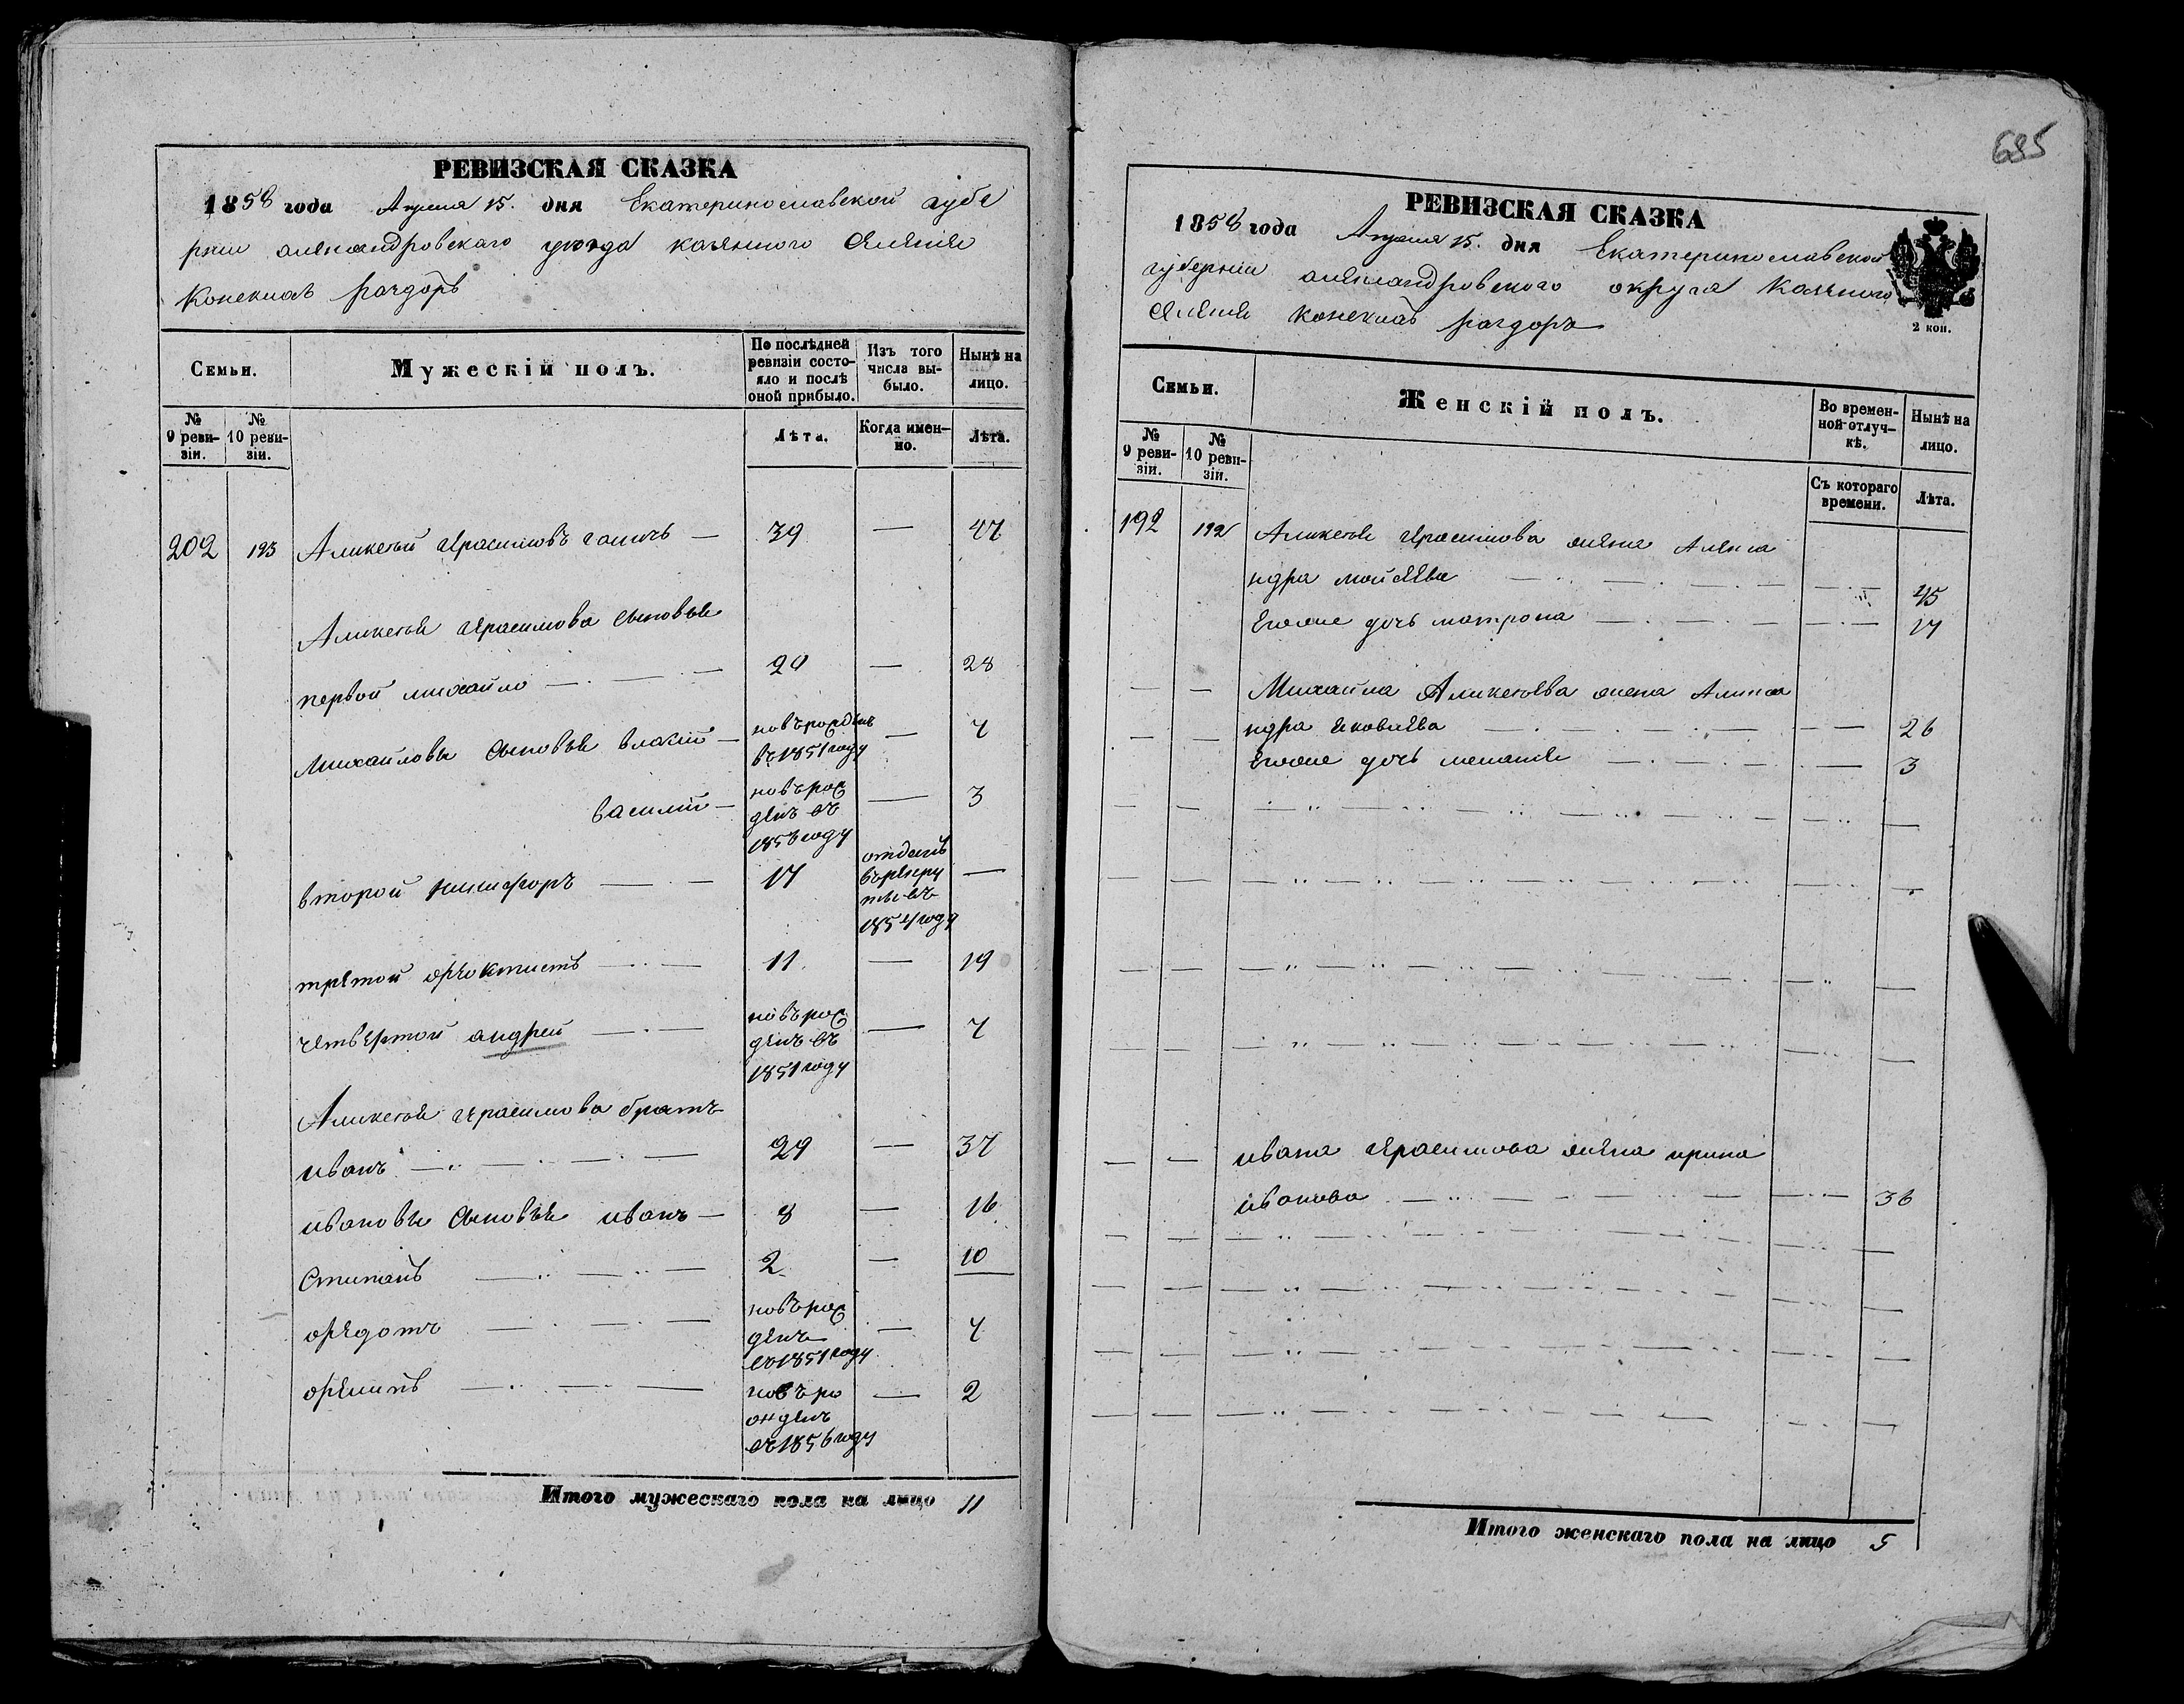 685
РЕВИЗСКАЯ СКАЗКА
1858 года Апреля 15. дня Екатеринославской губе
рнии александровскаго уезда казенного селения
Конских раздоръ
Семьи.
Мужескій полъ.
По послѣдней ревизіи состо-яло и послѣ оной прибыло.
Изъ того числа вы-было.
Нынѣ на лицо.
№ 9 реви-зіи.
№ 10 реви-зіи.
Лѣта.
Когда имен-но.
Лѣта.
202 193 Аликсей герасимовъ — 39 — 47
Аликсея герасимова сыновья
первой михайло — 20 — 28
Михайловы сыновья власий — новърожденъ въ 1851 году — 7
василий — новърож
денъ въ — 3
185 году
второй никифоръ — 17 отданъ
въ рекру
ты въ
1854 году —
третой феоктистъ — 11. — 19
четвертой андрей — новърож
денъ въ — 7
1851 году
Аликсея герасимова братъ
иванъ — 29 — 37
ивановы сыновья иванъ — 8 — 16
Стипанъ — 2 — 10
федотъ — новърож
денъ — 7
въ 1851 году
филипъ — новъро
жденъ — 2
въ 1856 году
Итого мужескаго пола на лицо 11
РЕВИЗСКАЯ СКАЗКА
1858 года Апреля 15. дня Екатеринославской
губернии александровского округа Казеного
селения конских раздоръ
2 коп.
Семьи.
Женскій полъ.
Во времен-ной отлуч-кѣ.
Нынѣ на лицо.
№ 9 реви-зіи.
№ 10 реви-зіи.
Съ котораго времени.
Лѣта.
192 192 Аликсея герасимова жена Алекса
ндра мойсеева — 45
Ево дочь матрона — 17
Михайла Аликсеева жена Алекса
ндра яковлева — 26
Ево дочь мелания — 3
ивана герасимова жена ирина
иванова — 36
Итого женскаго пола на лицо 5